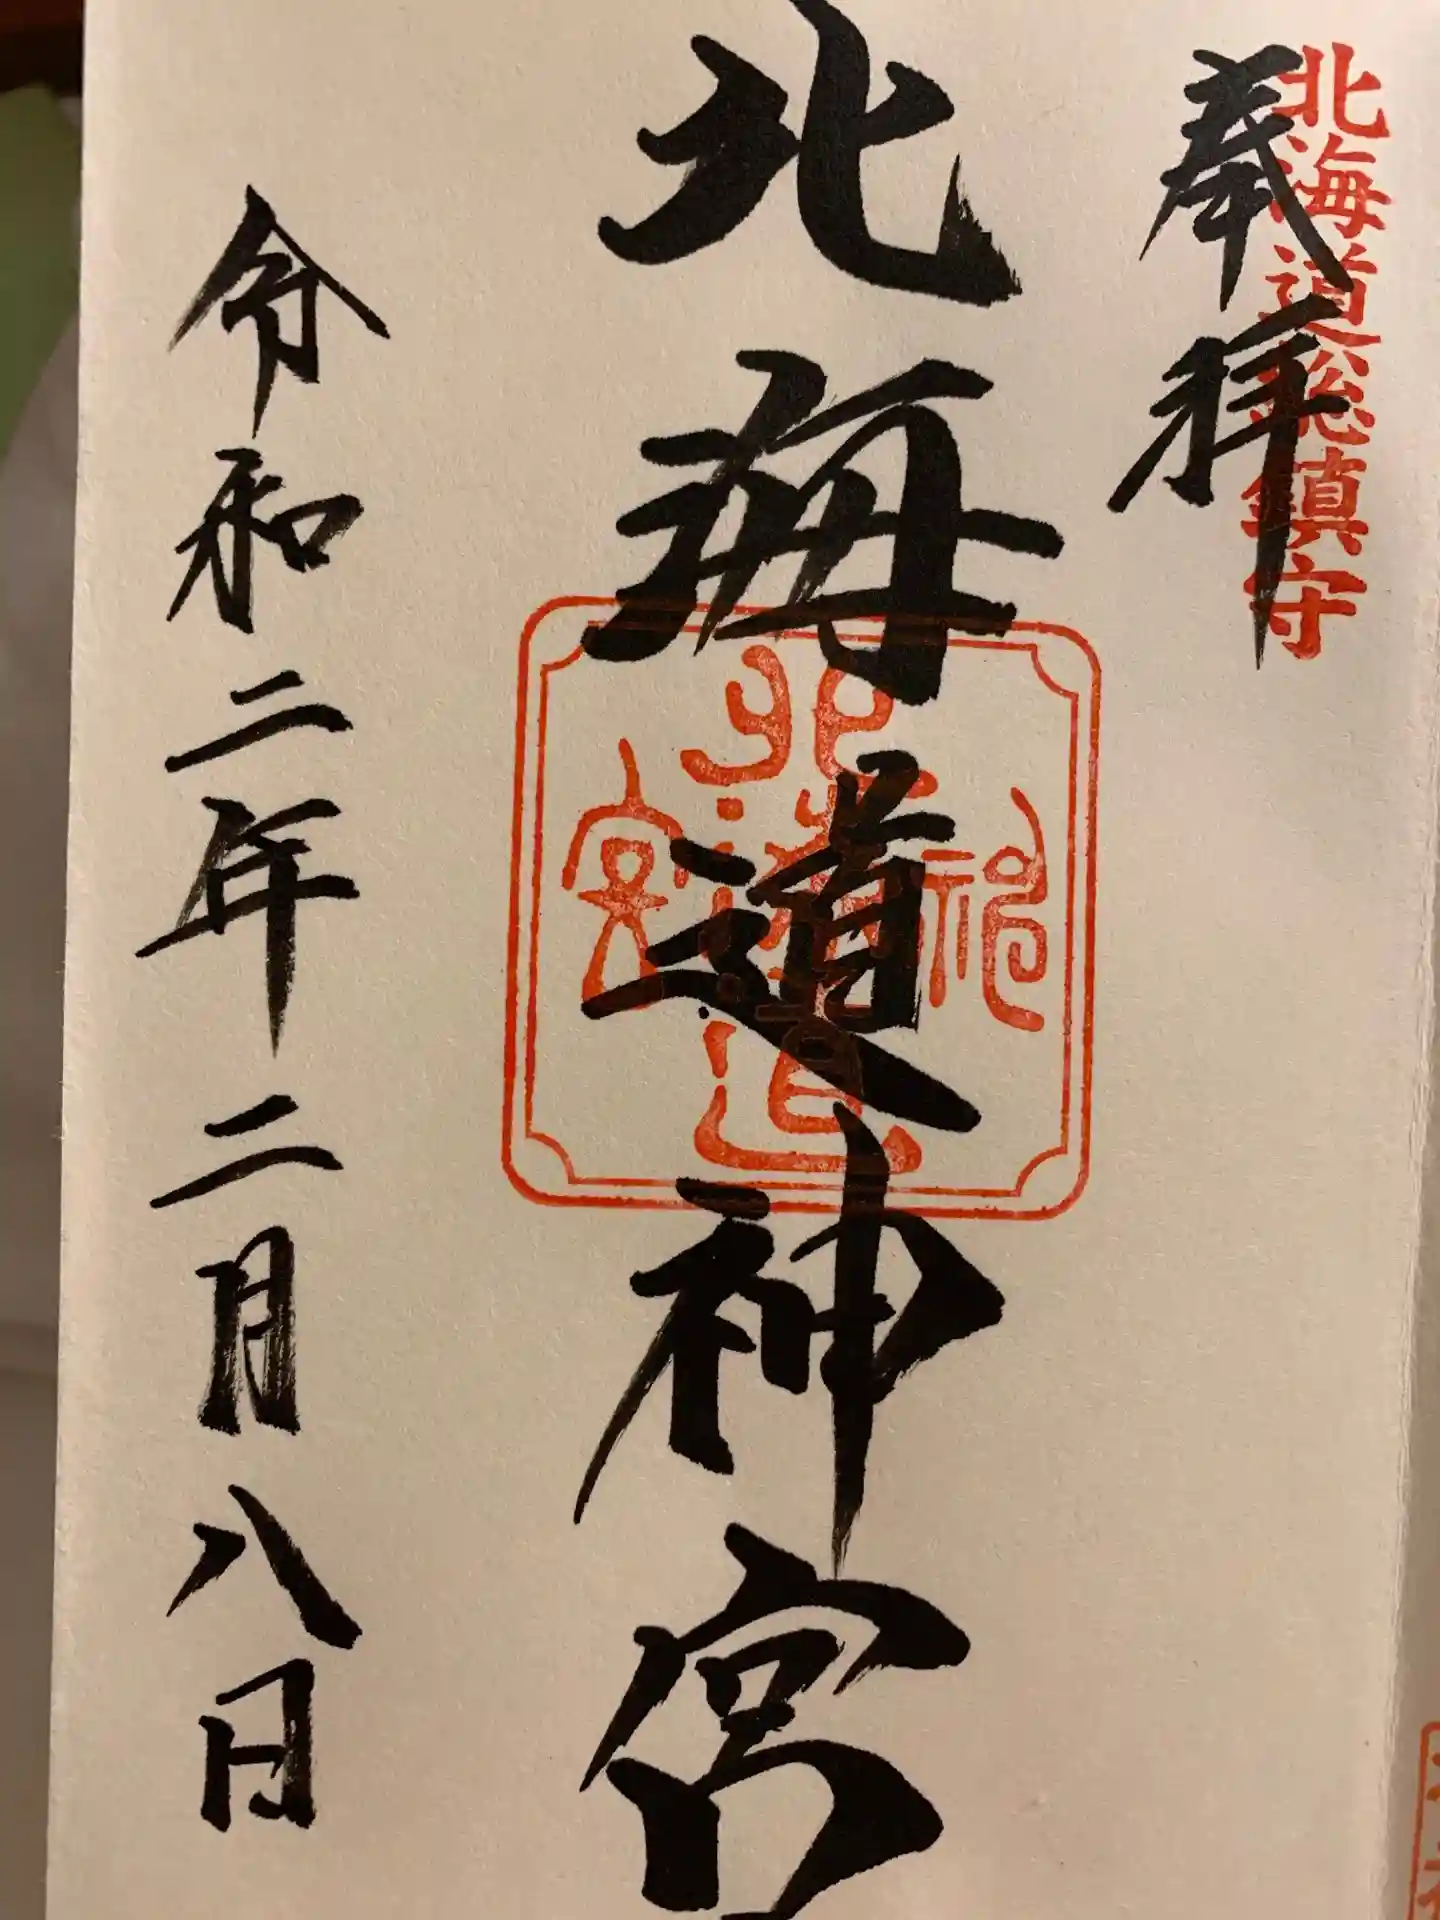 北海道総鎮守
奉拝
北海道神宮
北海道神宮
令和二年二月八日